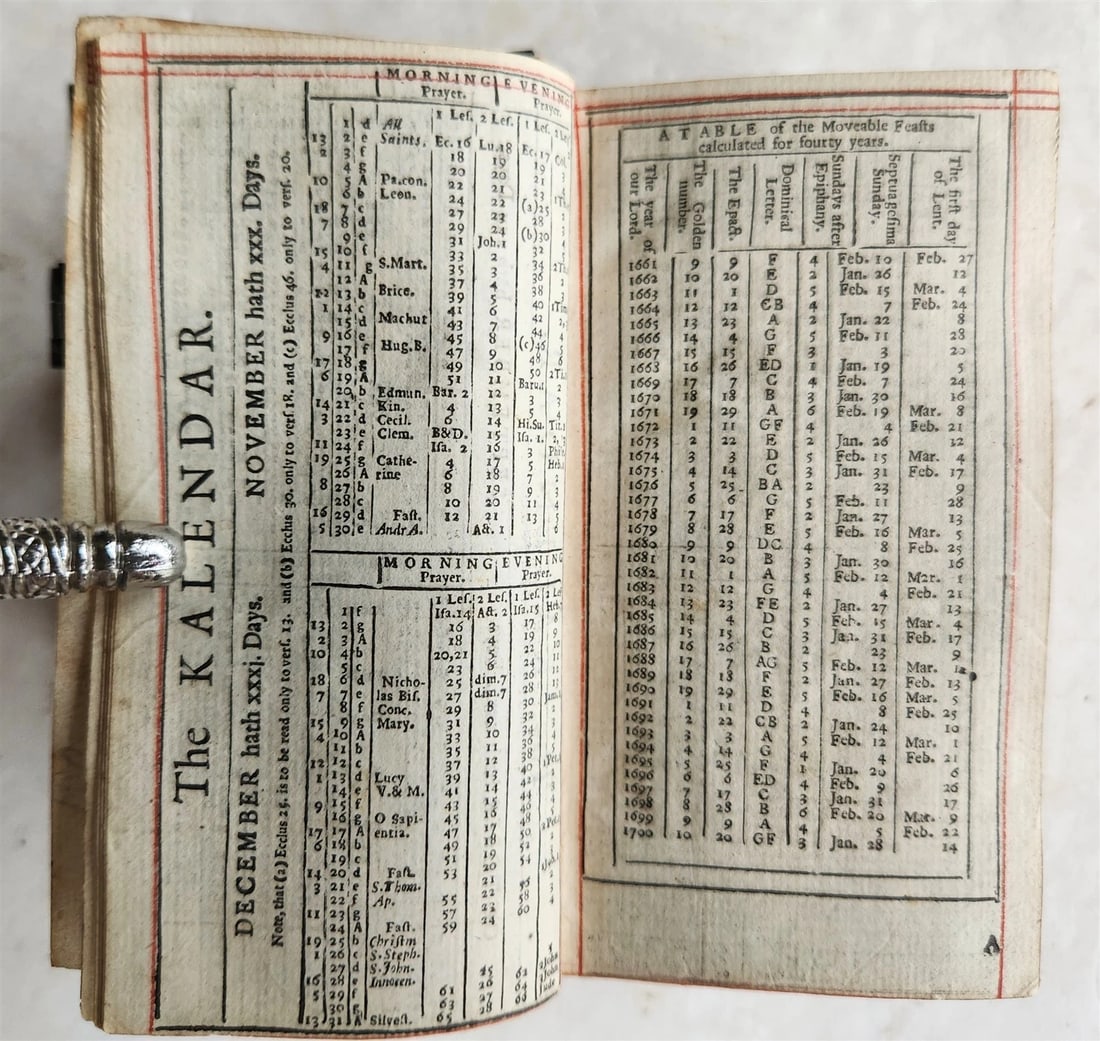 The KALENDAR.
DECEMBER hath xxxj. Days. NOVEMBER hath xxx. Days.
Note, that (a) Ecclus 25. is to be read only to verſ. 13. and (b) Ecclus 30. only to verſ 18. and (c) Ecclus 46. only to verſ. 20.
MORNING EVENING
Prayer. Prayer.
1 Leſ. 2 Leſ. 1 Leſ. 2 Leſ.
1 d All
13 2 e Saints. Ec. 16 Lu. 18 Ec. 17 Col.
2 3 f 18 19 19
4 g 20 20 21
10 5 A Pa.con. 22 21 23
6 b Leon. 24 22 (a)25
18 7 c 27 23 28
7 8 d 29 24 (b)30
9 e 31 Joh.1 32
15 10 f 33 2 34
4 11 g S.Mart. 35 3 36
12 A 37 4 38
12 13 b Brice. 39 5 40
1 14 c 41 6 42
15 d Machut 43 7 44
9 16 e 45 8 (c)46
17 f Hug.B. 47 9 48
17 18 g 49 10 50
6 19 A 51 11 Baru.1
20 b Edmun. Bar. 2 12 3
14 21 c Kin. 4 13 5
3 22 d Cecil. 6 14 Hi.Su.
23 e Clem. B&D. 15 Iſa. 1.
11 24 f Iſa. 2 16 3
19 25 g Cathe- 4 17 5
26 A rine 6 18 7
8 27 b 8 19 9
28 c 10 20 11
16 29 d Faſt. 12 21 13
5 30 e AndrA. A&. 1
MORNING EVENING
Prayer. Prayer.
1 Leſ. 2 Leſ. 1 Leſ. 2 Le
1 f Iſa.14 A&. 2 Iſa.15 Heb.
13 2 g 16 3 17
2 3 A 18 4 19
10 4 b 20,21 5 22
5 c 23 6 24
18 6 d Nicho- 25 dim.7 26
7 7 e las Biſ. 27 dim.7 28
8 f Conc. 29 8 30
15 9 g Mary. 31 9 32
4 10 A 33 10 34
11 b 35 11 36
12 12 c 37 12 38
1 13 d Lucy 39 13 40
14 e V.& M. 41 14 42
9 15 f 43 15 44
16 g O Sapi- 45 16 46
17 17 A entia. 47 17 48
6 18 b 49 18 50
19 c 51 19 52
14 20 d Faſt. 53 20 54
3 21 e S.Thom.
22 f Ap. 55 22
11 23 g 57 23 58
24 A Faſt. 59 24 60
19 25 b Chriſtm
1 26 c S.Steph.
27 d S.John.
16 28 e Innocen.
5 29 f 61 26 62
30 g 63 27 64
13 31 A Silveſt. 65 28 66
A TABLE of the Moveable Feaſts
calculated for fourty years.
The year of our Lord. The Golden number. The Epact. Dominical Letter. Sundays after Epiphany. Septuageſima Sunday. The firſt day of Lent.
1661 9 9 F 4 Feb. 10 Feb. 27
1662 10 20 E 2 Jan. 26 12
1663 11 1 D 5 Feb. 15 Mar. 4
1664 12 12 CB 4 7 Feb. 24
1665 13 23 A 2 Jan. 22 8
1666 14 4 G 5 Feb. 11 28
1667 15 15 F 3 3 20
1663 16 26 ED 1 Jan. 19 5
1669 17 7 C 4 Feb. 7 24
1670 18 18 B 3 Jan. 30 16
1671 19 29 A 6 Feb. 19 Mar. 8
1672 1 11 GF 4 4 Feb. 21
1673 2 22 E 2 Jan. 26 12
1674 3 3 D 5 Feb. 15 Mar. 4
1675 4 14 C 3 Jan. 31 Feb. 17
1676 5 25 BA 2 23 9
1677 6 6 G 5 Feb. 11 28
1678 7 17 F 2 Jan. 27 13
1679 8 28 E 5 Feb. 16 Mar. 5
1680 9 9 DC 4 8 Feb. 25
1681 10 20 B 3 Jan. 30 16
1682 11 1 A 5 Feb. 12 Mar. 1
1683 12 12 G 4 4 Feb. 21
1684 13 23 FE 2 Jan. 27 13
1685 14 4 D 5 Feb. 15 Mar. 4
1686 15 15 C 3 Jan. 31 Feb. 17
1687 16 26 B 2 23 9
1688 17 7 AG 5 Feb. 12 Mar. 1
1689 18 18 F 2 Jan. 27 Feb. 13
1690 19 29 E 5 Feb. 16 Mar. 5
1691 1 11 D 4 8 Feb. 25
1692 2 22 CB 2 Jan. 24 10
1693 3 3 A 5 Feb. 12 Mar. 1
1694 4 14 G 4 4 Feb. 21
1695 5 25 F 1 Jan. 20 6
1696 6 6 ED 4 Feb. 9 26
1697 7 17 C 3 Jan. 31 17
1698 8 28 B 6 Feb. 20 Mar. 9
1699 9 9 A 4 5 Feb. 22
1700 10 20 GF 3 Jan. 28 14
A